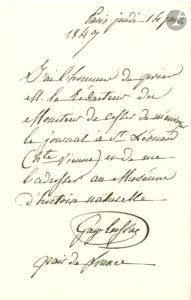 Paris jeudi 14
1847
J'ai l'honneur de prier
M. le Rédacteur du
Moniteur de cesser de m'envoyer
le journal à St Léonard
(hte Vienne) et de me
l'adresser au Muséum
d'histoire naturelle
Gay-Lussac
pair de france